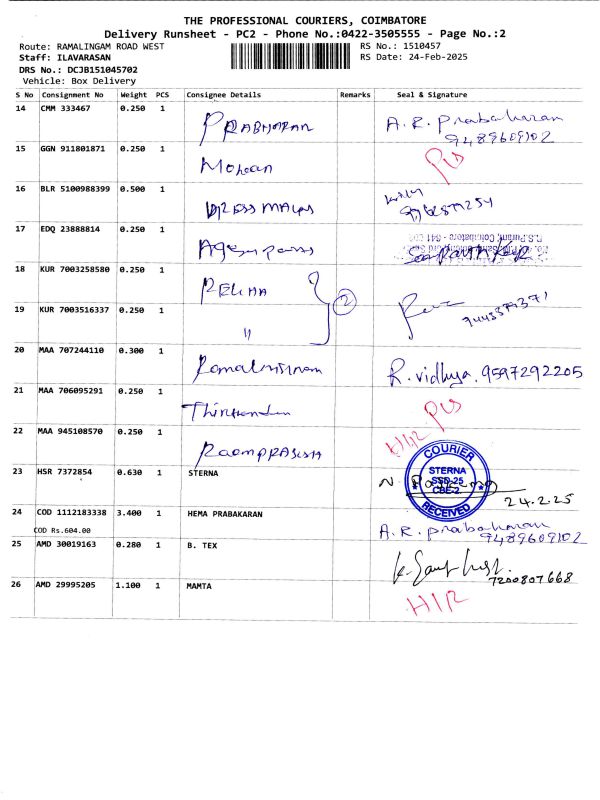 THE PROFESSIONAL COURIERS, COIMBATORE
Delivery Runsheet - PC2 - Phone No.:0422-3505555 - Page No.:2
Route: RAMALINGAM ROAD WEST RS No.: 1510457
Staff: ILAVARASAN RS Date: 24-Feb-2025
DRS No.: DCJB151045702
Vehicle: Box Delivery
S No Consignment No Weight PCS Consignee Details Remarks Seal & Signature
14 CMM 333467 0.250 1 PRABHAKAR A.R. Prabakaran
9489609102
15 GGN 911801871 0.250 1 Mohan
16 BLR 5100988399 0.500 1
17 EDQ 23888814 0.250 1
18 KUR 7003258580 0.250 1 REKHA 2
19 KUR 7003516337 0.250 1 "
20 MAA 707244110 0.300 1 R. vidhya. 9597292205
21 MAA 706095291 0.250 1
22 MAA 945108570 0.250 1
23 HSR 7372854 0.630 1 STERNA
COURIER
STERNA
SSD-25
CBE-2
RECEIVED
24.2.25
24 COD 1112183338 3.400 1 HEMA PRABAKARAN A.R. prabakaran
COD Rs.604.00 9489609102
25 AMD 30019163 0.280 1 B. TEX
7200807668
26 AMD 29995205 1.100 1 MAMTA